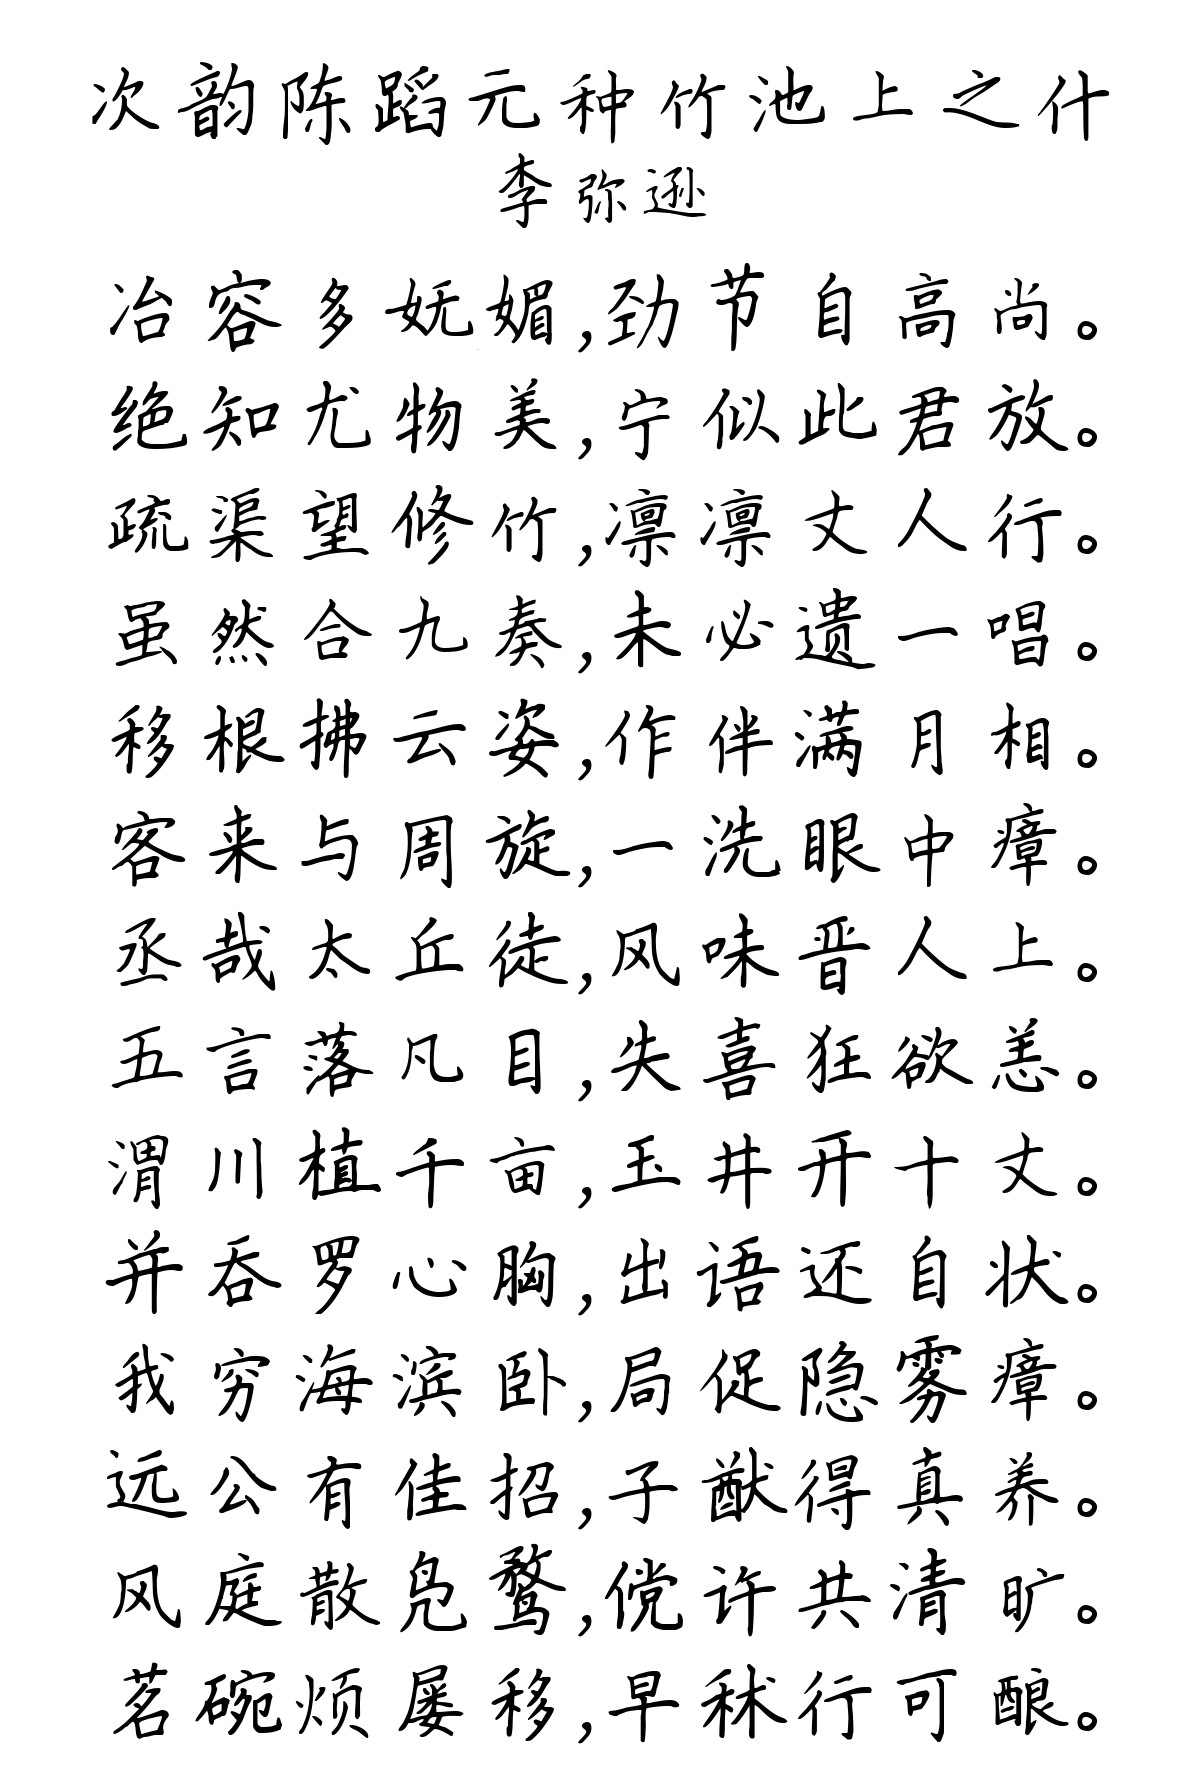 次韵陈蹈元种竹池上之什
李弥逊
冶容多妩媚,劲节自高尚。
绝知尤物美,宁似此君放。
疏渠望修竹,凛凛丈人行。
虽然合九奏,未必遗一唱。
移根拂云姿,作伴满月相。
客来与周旋,一洗眼中瘴。
丞哉太丘徒,风味晋人上。
五言落凡目,失喜狂欲恙。
渭川植千亩,玉井开十丈。
并吞罗心胸,出语还自状。
我穷海滨卧,局促隐雾瘴。
远公有佳招,子猷得真养。
风庭散凫鹜,傥许共清旷。
茗碗烦屡移,早秫行可酿。